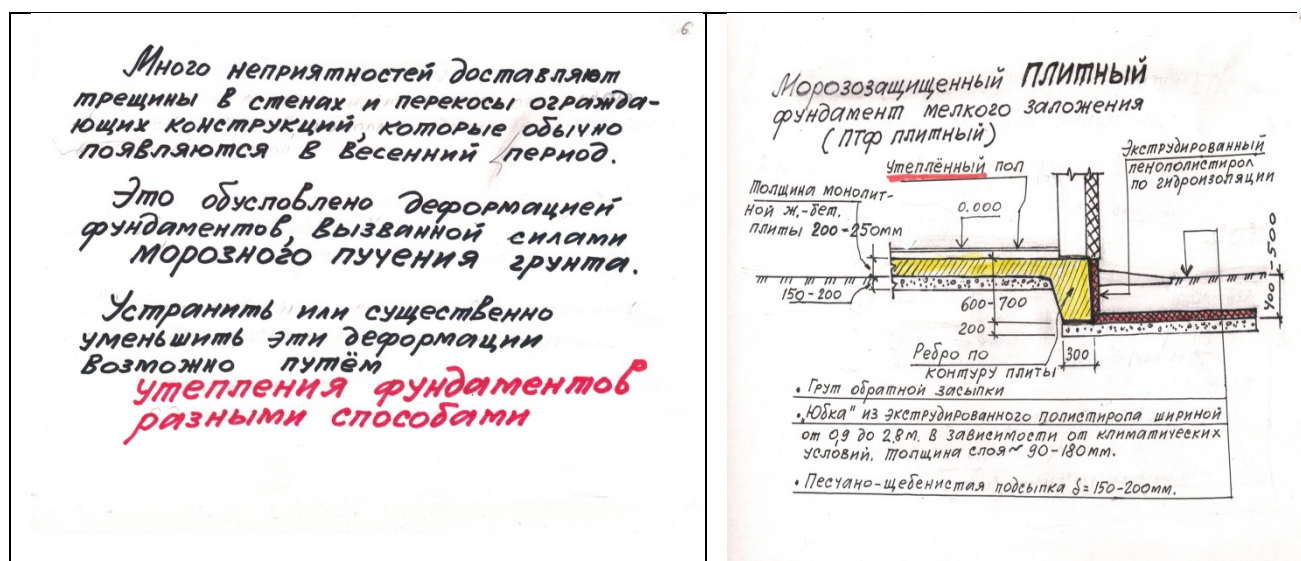 6
Много неприятностей доставляют
трещины в стенах и перекосы огражда-
ющих конструкций, которые обычно
появляются в весенний период.
Это обусловлено деформацией
фундаментов, вызванной силами
морозного пучения грунта.
Устранить или существенно
уменьшить эти деформации
возможно путём
утепления фундаментов
разными способами
Морозозащищенный ПЛИТНЫЙ
фундамент мелкого заложения
(ПТФ плитный)
Экструдированный
пенополистирол
по гидроизоляции
Утеплённый пол
Толщина монолит-
ной ж.-бет.
плиты 200-250мм
0.000
150-200
600-700
200
400-500
300
Ребро по
контуру плиты
• Грут обратной засыпки
• „Юбка" из экструдированного полистирола шириной
от 0,9 до 2,8м. в зависимости от климатических
условий. Толщина слоя ~ 90-180мм.
• Песчано-щебенистая подсыпка δ = 150-200мм.